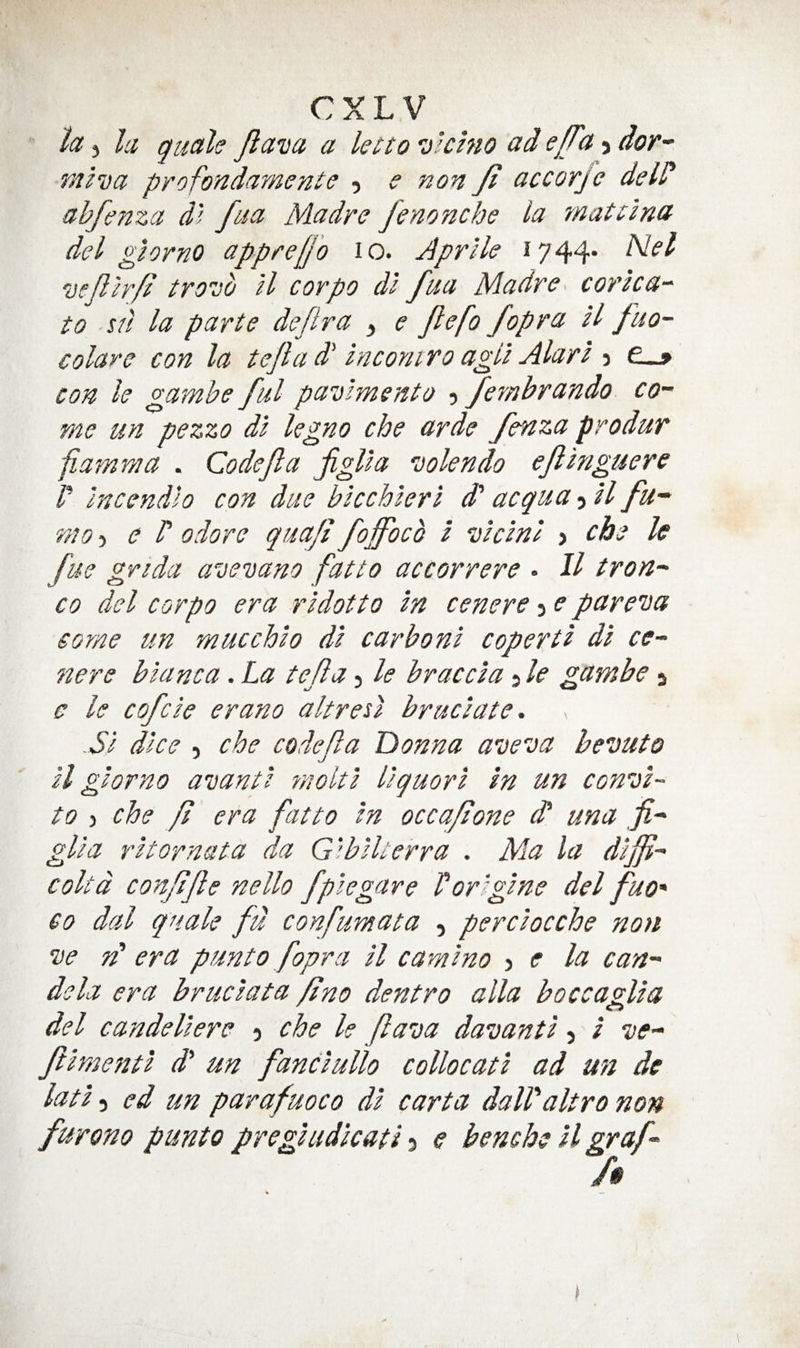 CXLV
la, la quale ſtava a letto vicino ad eſſa, dor-
miva profondamente, e non ſi accorſe dell'
abſenza dì ſua Madre ſenonche la mattina
del giorno appreſſo 10. Aprile 1744. Nel
veſtirſi trovò il corpo di ſua Madre corica-
to sù la parte deſtra, e ſteſo ſopra il fuo-
colare con la teſta d' incontro agli Alari, e
con le gambe ſul pavimento, ſembrando co-
me un pezzo di legno che arde ſenza produr
fiamma. Codeſta figlia volendo eſtinguere
l' incendio con due bicchieri d' acqua, il fu-
mo, e l' odore quaſi ſoffocò i vicini, che le
ſue grida avevano fatto accorrere. Il tron-
co del corpo era ridotto in cenere, e pareva
come un mucchio di carboni coperti di ce-
nere bianca. La teſta, le braccia, le gambe,
e le coſcie erano altresì bruciate.
Si dice, che codeſta Donna aveva bevuto
il giorno avanti molti liquori in un convi-
to, che ſi era fatto in occaſione d' una fi-
glia ritornata da Gibilterra. Ma la diffi-
coltà conſiſte nello ſpiegare l'origine del fuo-
co dal quale fù conſumata, perciocche non
ve n' era punto ſopra il camino, e la can-
dela era bruciata ſino dentro alla boccaglia
del candeliere, che le ſtava davanti, i ve-
ſtimenti d' un fanciullo collocati ad un de
lati, ed un parafuoco di carta dall'altro non
furono punto pregiudicati, e benche il graſ-
ſo